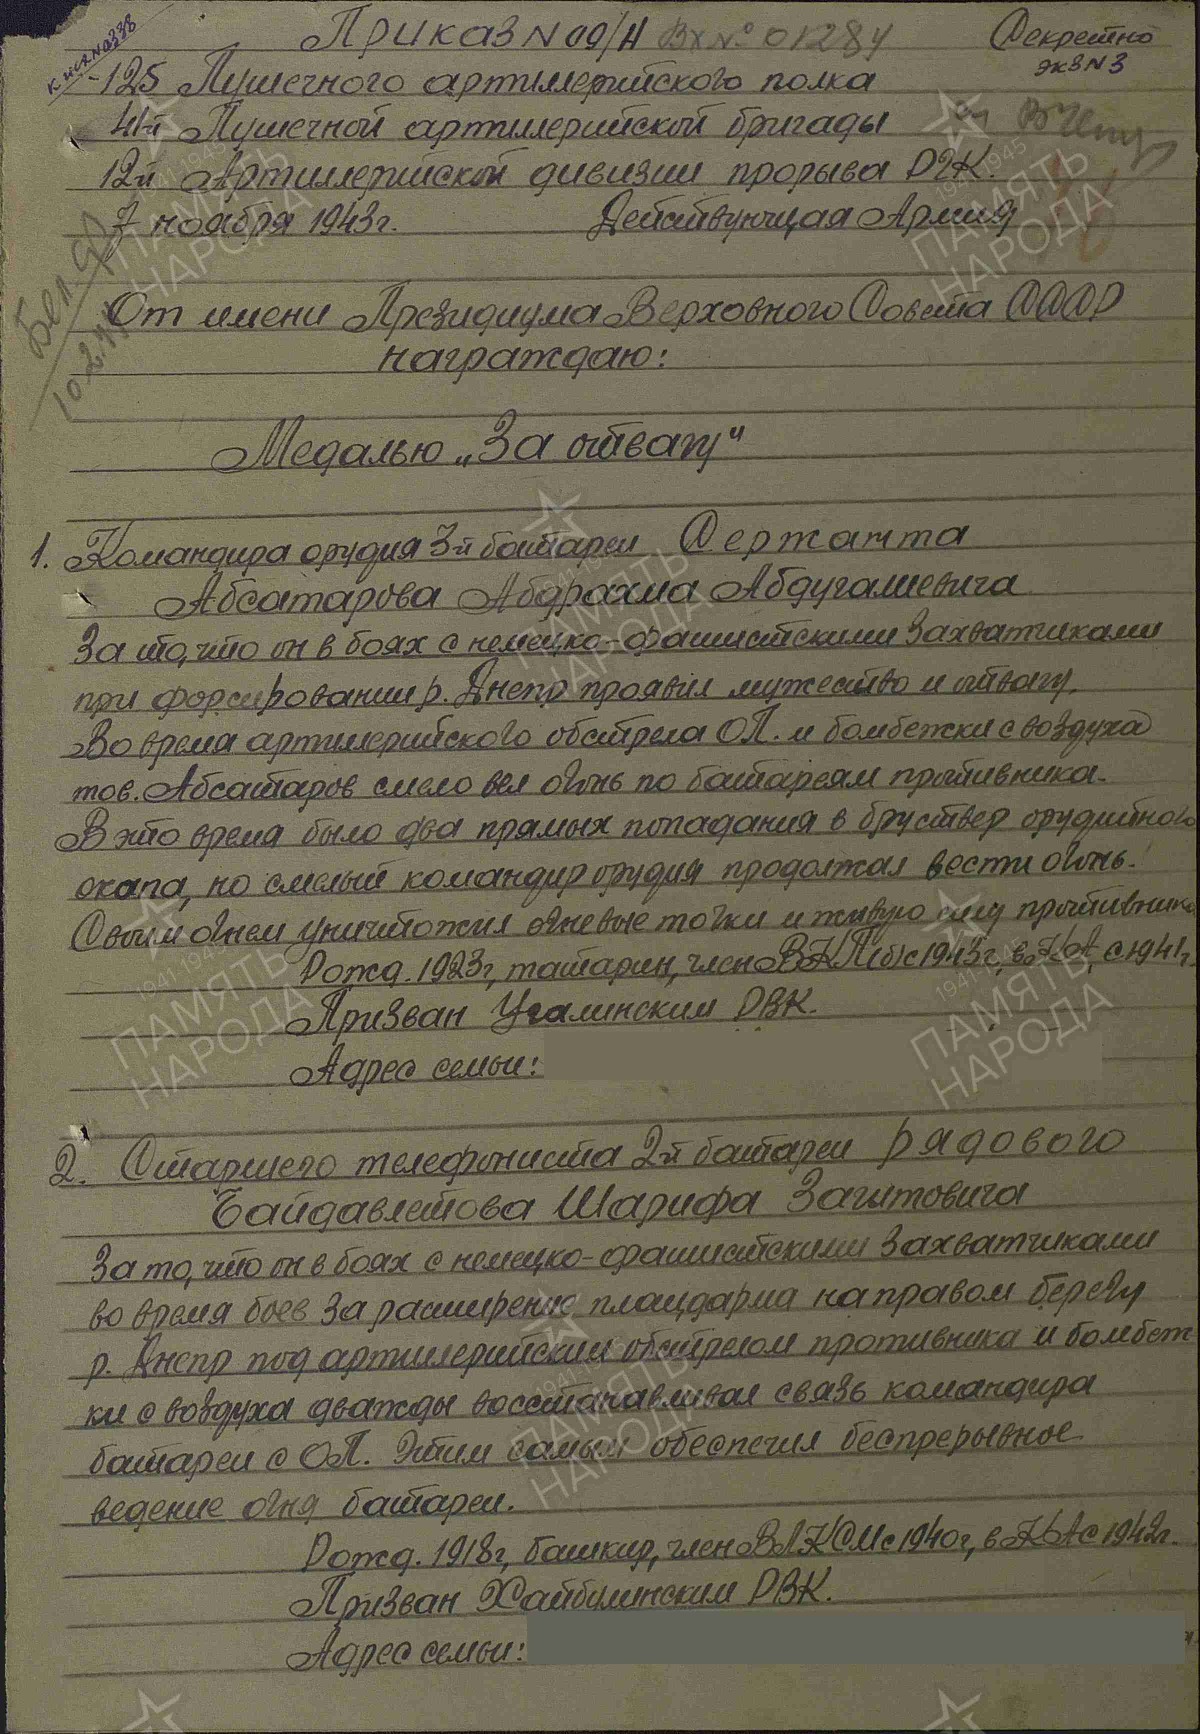 к исх №0338
Приказ N 09/Н Вх № 01284
Секретно
экз N 3
-125 Пушечного артиллерийского полка
41й Пушечной артиллерийской бригады
12й Артиллерийской дивизии прорыва РГК.
7 ноября 1943г. Действующая Армия
От имени Президиума Верховного Совета СССР
награждаю:
Медалью „За отвагу"
1. Командира орудия 3й батареи Сержанта
Абсатарова Абдрахма Абдугалиевича
За то, что он в боях с немецко-фашистскими захватчиками
при форсировании р. Днепр проявил мужество и отвагу.
Во время артиллерийского обстрела ОП. и бомбежки с воздуха
тов. Абсатаров смело вел огонь по батареям противника.
В это время было два прямых попадания в бруствер орудийного
окапа, но смелый командир орудия продолжал вести огонь.
Своим огнем уничтожил огневые точки и живую силу противника
Рожд. 1923г, татарин, член ВКП(б) с 1943г, в КА, с 1941г.
Призван Учалинским РВК.
Адрес семьи:
2. Старшего телефониста 2й батареи рядового
Байдавлетова Шарифа Загитовича
За то, что он в боях с немецко-фашистскими захватчиками
во время боев за расширение плацдарма на правом берегу
р. Днепр под артиллерийским обстрелом противника и бомбеж
ки с воздуха дважды восстанавливал связь командира
батареи с ОП. Этим самым обеспечил беспрерывное
ведение огня батареи.
Рожд. 1918г, башкир, член ВЛКСМ с 1940г, в КА с 1942г.
Призван Хайбулинским РВК.
Адрес семьи:
ПАМЯТЬ
НАРОДА
1941-1945